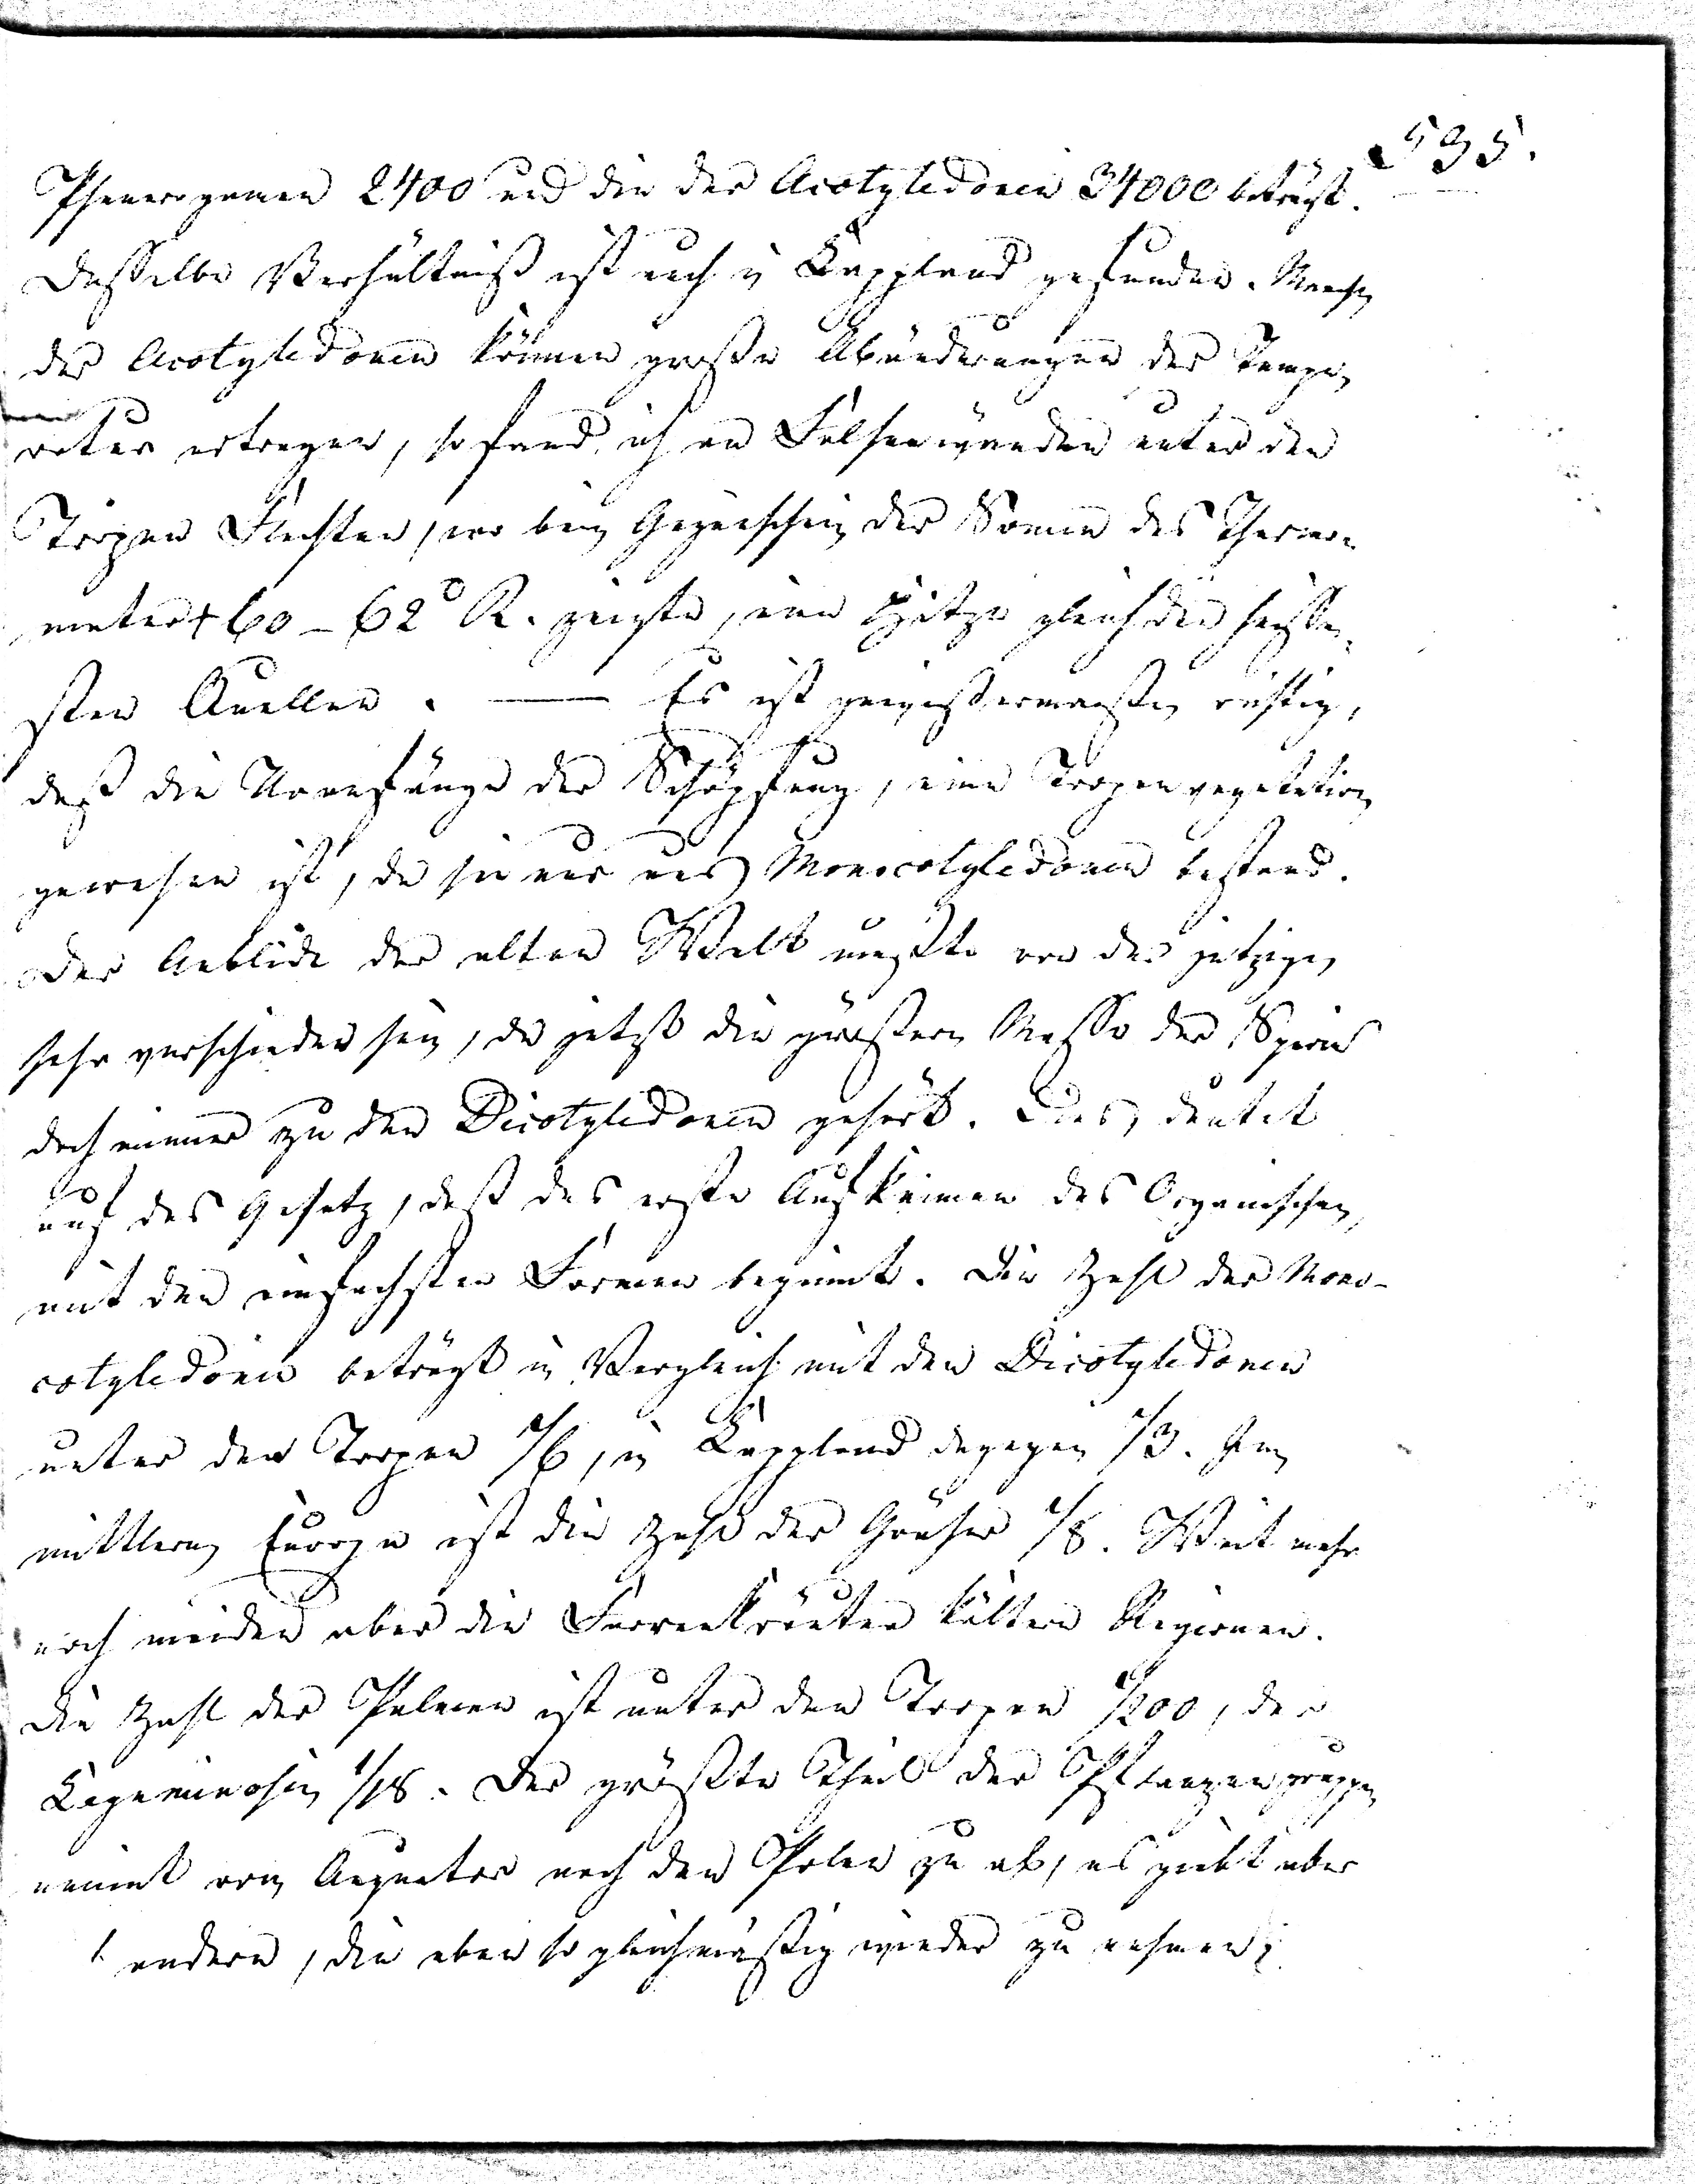 535.
Phanerogamen 2400 und die der Acotyledonen 34000 beträgt.
Dasselbe Verhältniß ist auch in Lappland gefunden. Manche
der Acotyledonen können große Abänderungen der Tempe-
ratur ertragen, so fand ich an Felsenwänden unter den
Tropen Flechten, wo beim Gegenschein der Sonne das Thermo-
meter + 60 – 62° R. zeigte, eine Hitze gleich den heisse-
sten Quellen. — Es ist gewissermaaßen richtig,
daß die Uranfänge der Schöpfung, eine Tropenvegetation
gewesen ist, da sie nur aus Monocotyledonen bestand.
Der Anblick der alten Welt mußte von der jetzigen
sehr verschieden sein, da jetzt die größere Masse der Species
doch immer zu den Dicotyledonen gehört. Dies deutet
auf das Gesetz, daß das erste Aufkeimen des Organischen,
mit den einfachsten Formen beginnt. Die Zahl der Mono-
cotyledonen beträgt in Vergleich mit den Dicotyledonen
unter den Tropen 1/6, in Lappland dagegen 1/3. Im
mittlern Europa ist die Zahl der Gräser 1/8. Weit mehr
noch meiden aber die Farrenkräuter kältere Regionen.
Die Zahl der Palmen ist unter den Tropen 1/200, der
Legumenosen 1/18. Der größte Theil der Pflanzengruppen
nimmt vom Aequator nach den Polen zu ab, es giebt aber
andere, die eben so gleichmäßig wieder zu nehmen;